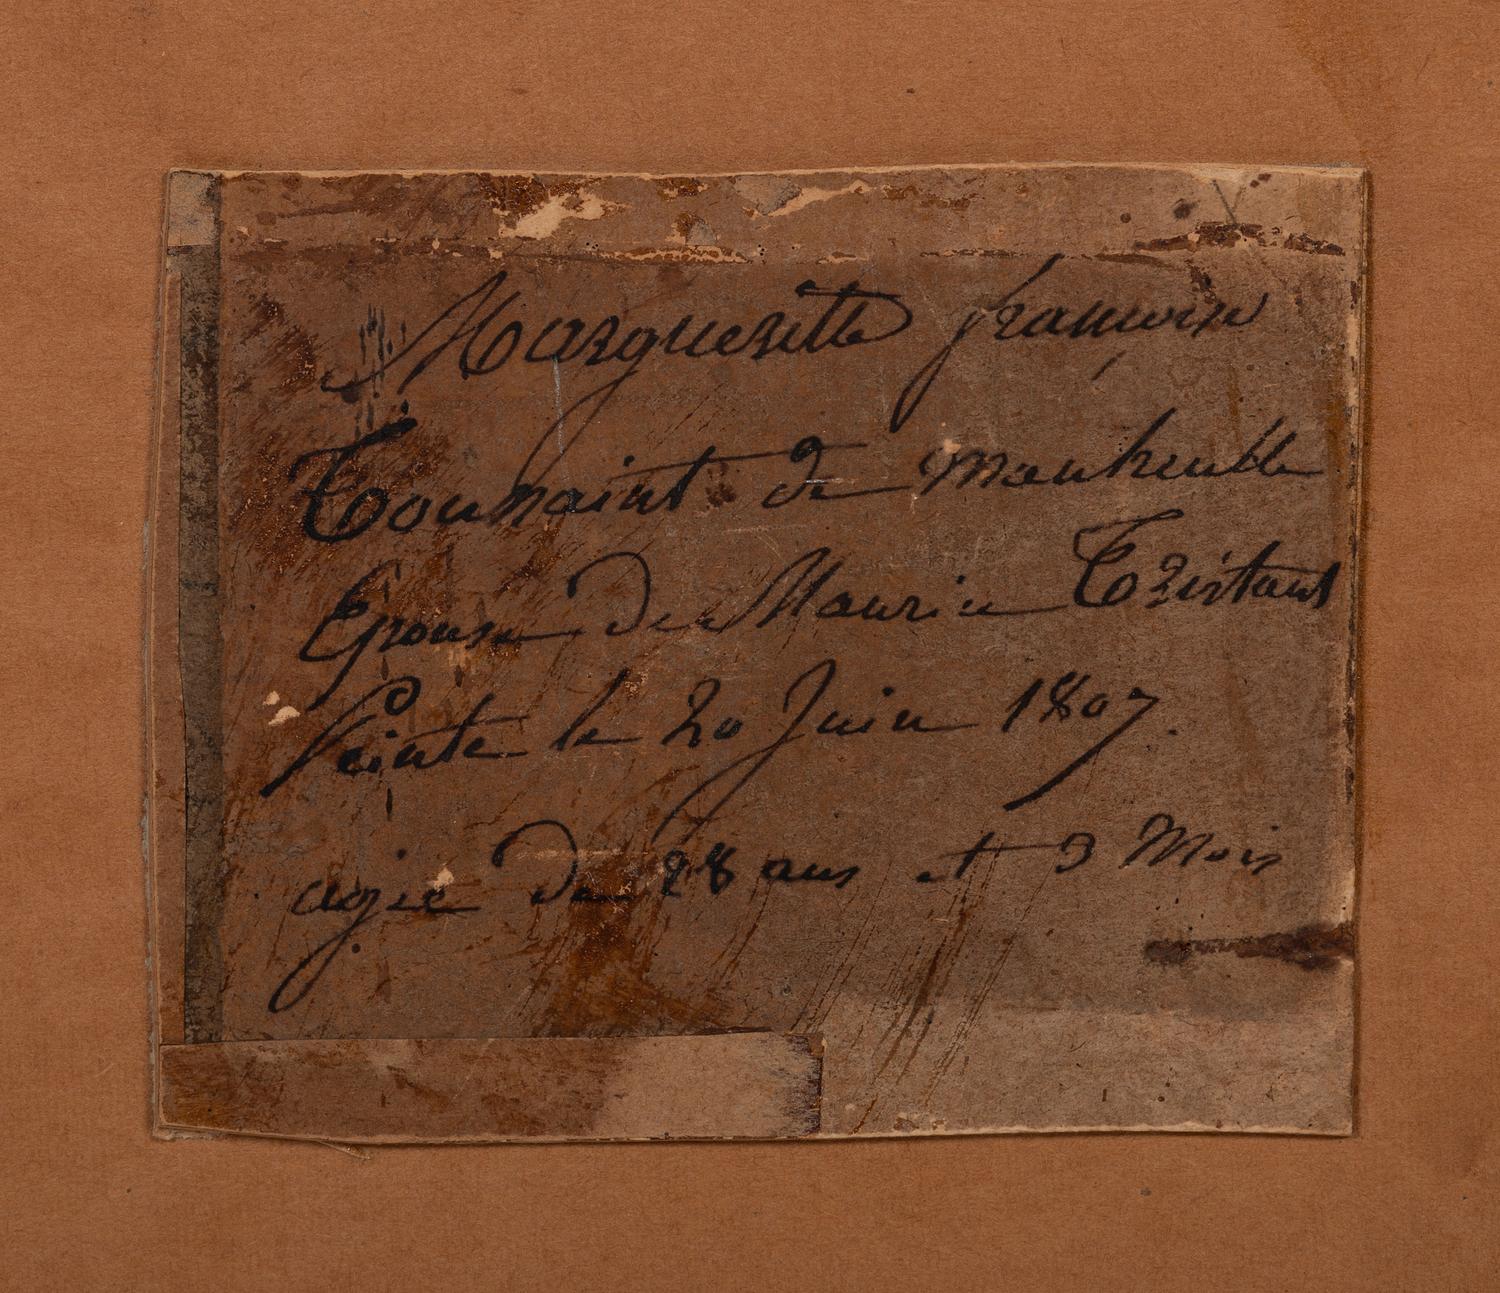 Margueritte françoise
Toussaint de
Epouse de Maurice Tristant
Peinte le 20 Juin 1807.
agée de 28 ans et 3 Mois